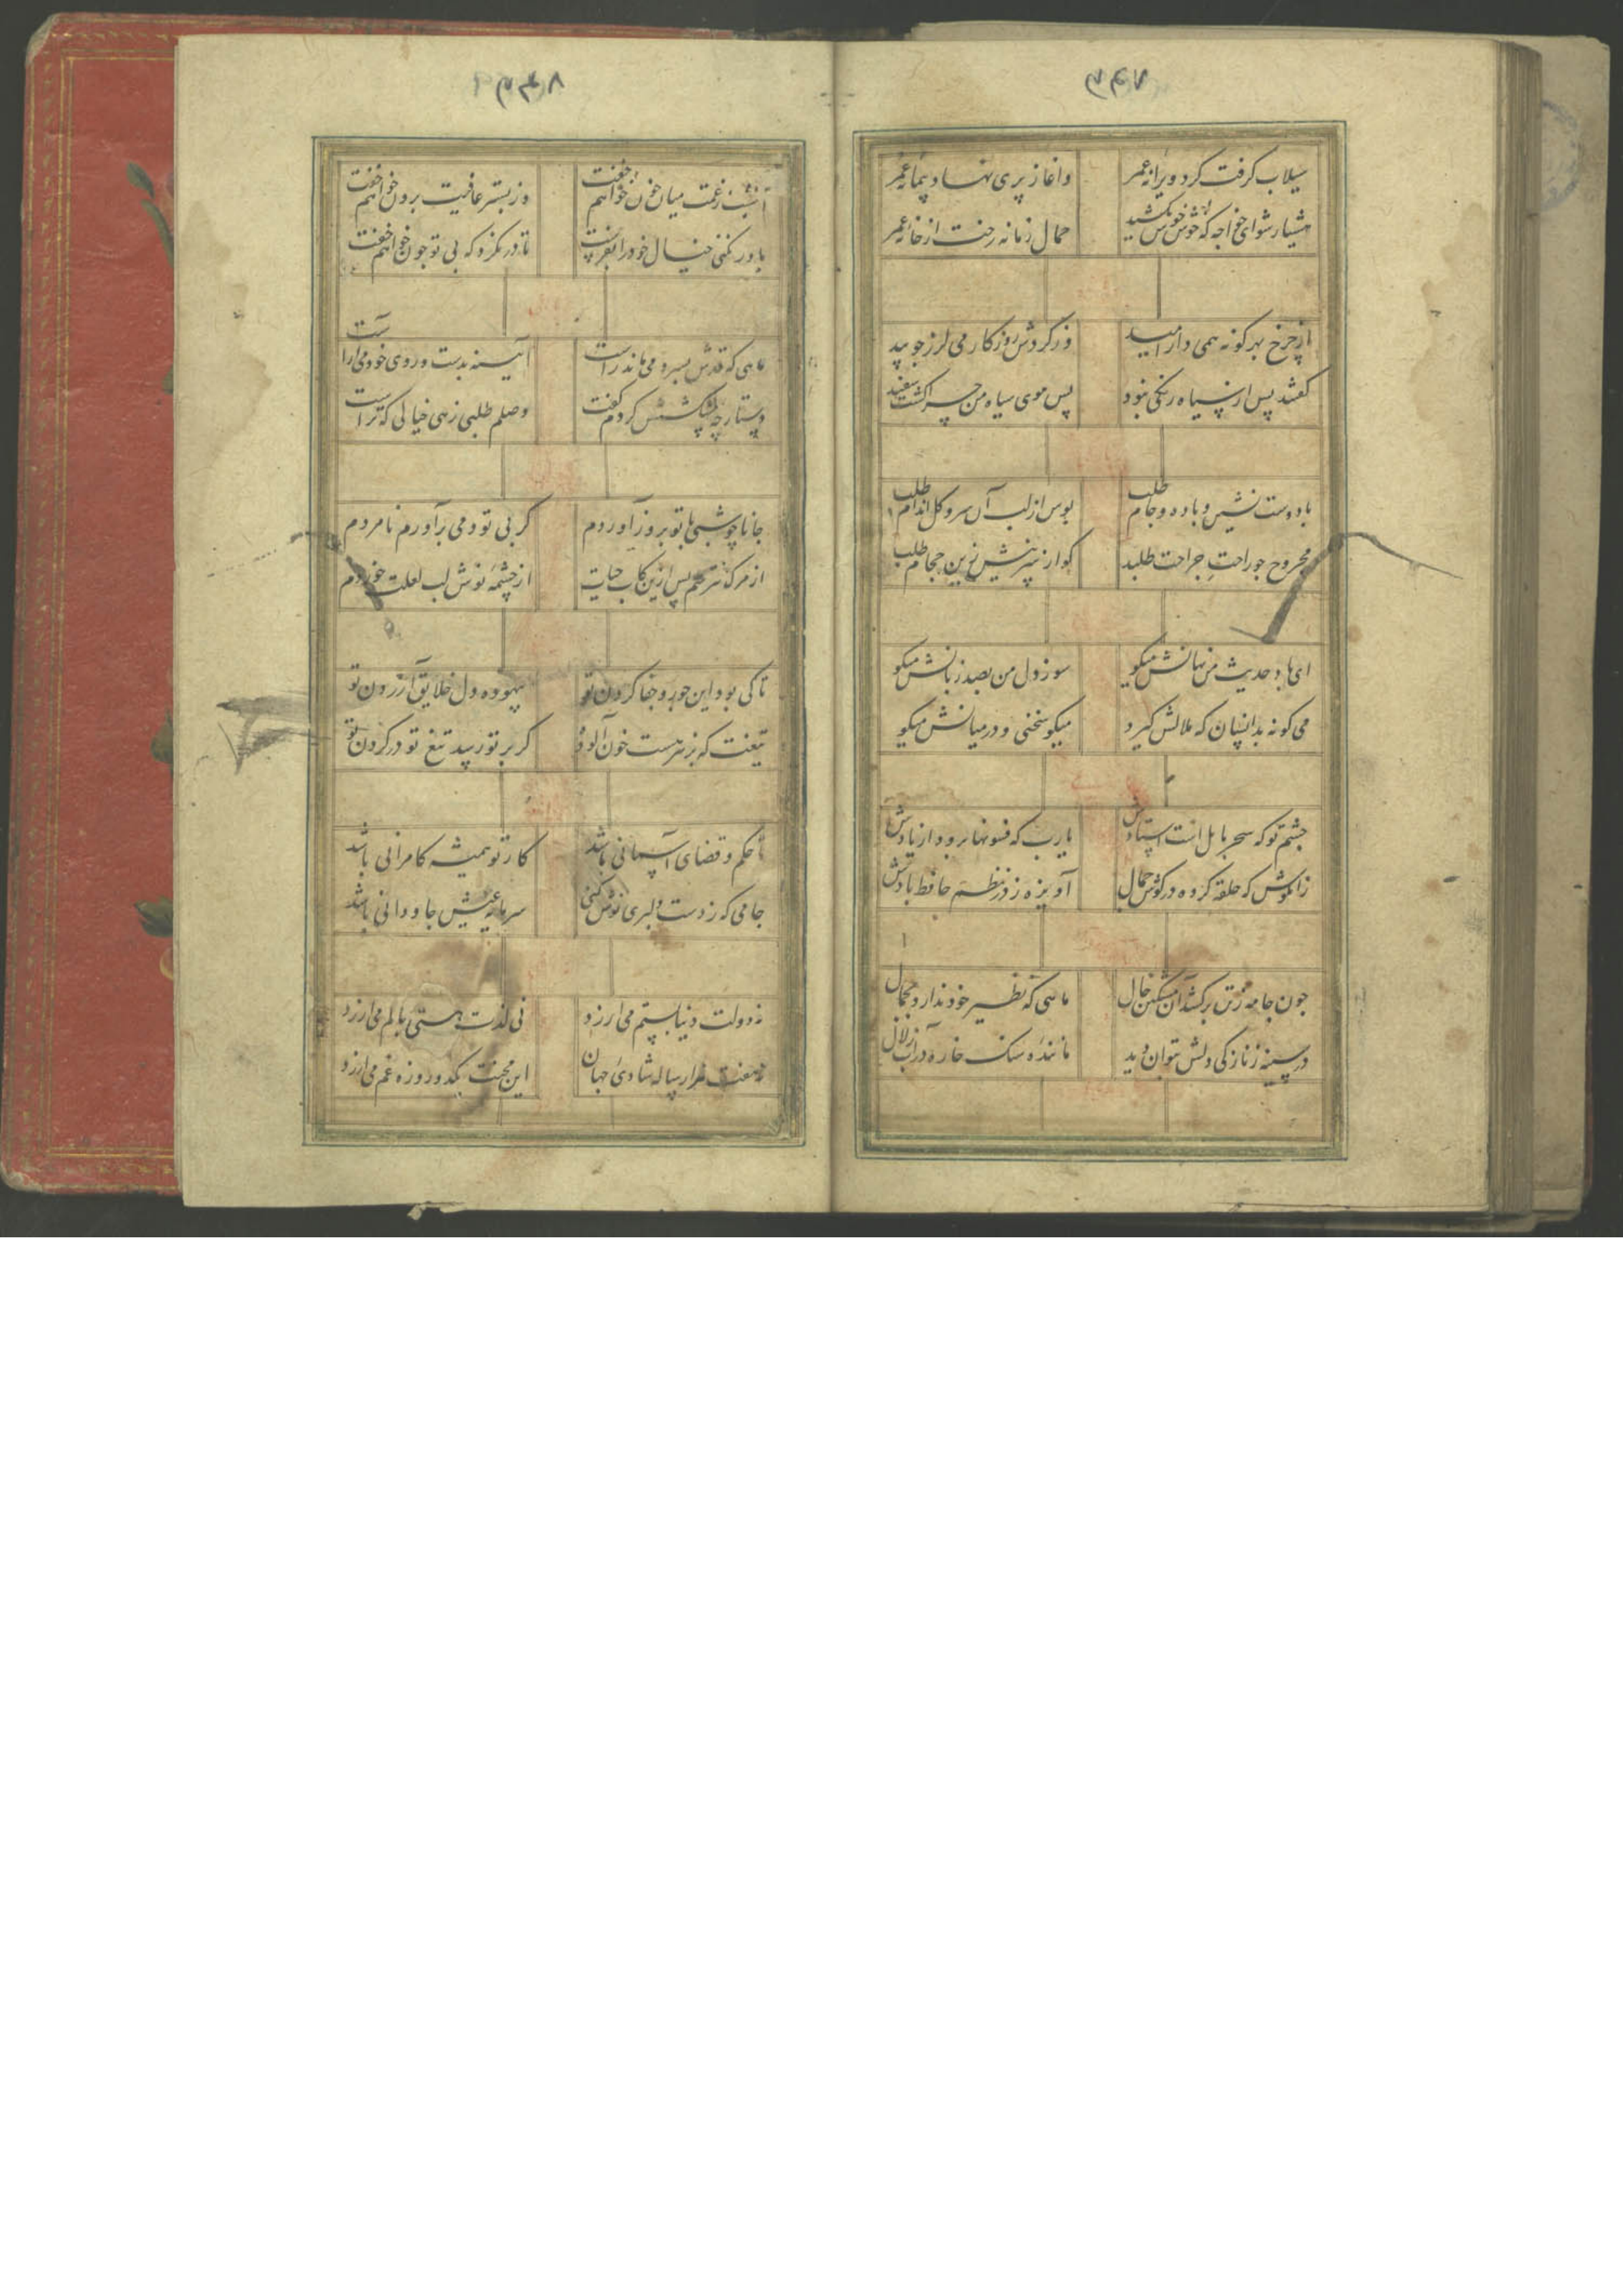 ۳۴۷
سیلاب گرفت گرد ویرانه عمر
واغاز پری نهاد پیمانه عمر
هشیار شو ای خواجه که خوش خوش بکشید
حمال زمانه رخت از خانه عمر
از چرخ بهر کونه همی دار امید
وز کردش روزکار می لرز جو بید
کفتند پس از سیاه رنکی نبود
پس موی سیاه من چرا کشت سفید
با دوست نشین و باده و جام طلب
بوس از لب آن سرو کل اندام طلب
مجروح جو راحتِ جراحت طلبد
کو از سر نیش زین حجام طلب
ای باد حدیث من نهانش میکو
سوز دل من بصد زبانش میکو
می کو نه بدانسان که ملالش کیرد
میکو سخنی و در میانش میکو
چشم تو که سحر بابل است استادش
یا رب که فسونها برود از یادش
زان کوش که حلقه کرد در کوش جمال
آویزه ز در نظم حافظ بادش
جون جامه ز تن برکشد آن مشکین خال
ماهی که نظیر خود ندارد بجمال
در سینه ز نازکی دلش بتوان دید
ماننده سنک خاره در آب زلال
۳۴۸
امشب ز غمت میان خون خواهم خفت
وز بستر عافیت برون خواهم خفت
باور نکنی خیال خود را بفرست
تا در نکرد که بی تو جون خواهم خفت
ماهی که قدش بسرو می ماند راست
آیینه بدست و روی خود می آراست
دستارچه پیشکشش کردم کفت
وصلم طلبی زهی خیالی که تراست
جانا چو شبی با تو بروز آوردم
کر بی تو دمی برآورم نامردم
از مرک نترسم پس ازین کاب حیات
از چشمه نوش لب لعلت خوردم
تا کی بود این جور و جفا کردن تو
بیهوده دل خلایق آزردن تو
تیغیست که بر سرست خون آلوده
کر بر تو رسید تیغ تو در کردن تو
تا حکم و قضای آسمانی باشد
کار تو همیشه کامرانی باشد
جامی که ز دست دلبری نوش کنی
سرمایه عیش جاودانی باشد
نه دولت دنیا بستم می ارزد
نی لذت هستی بالم می ارزد
نه هفت هزار ساله شادی جهان
این محنت یکدو روزه غم می ارزد